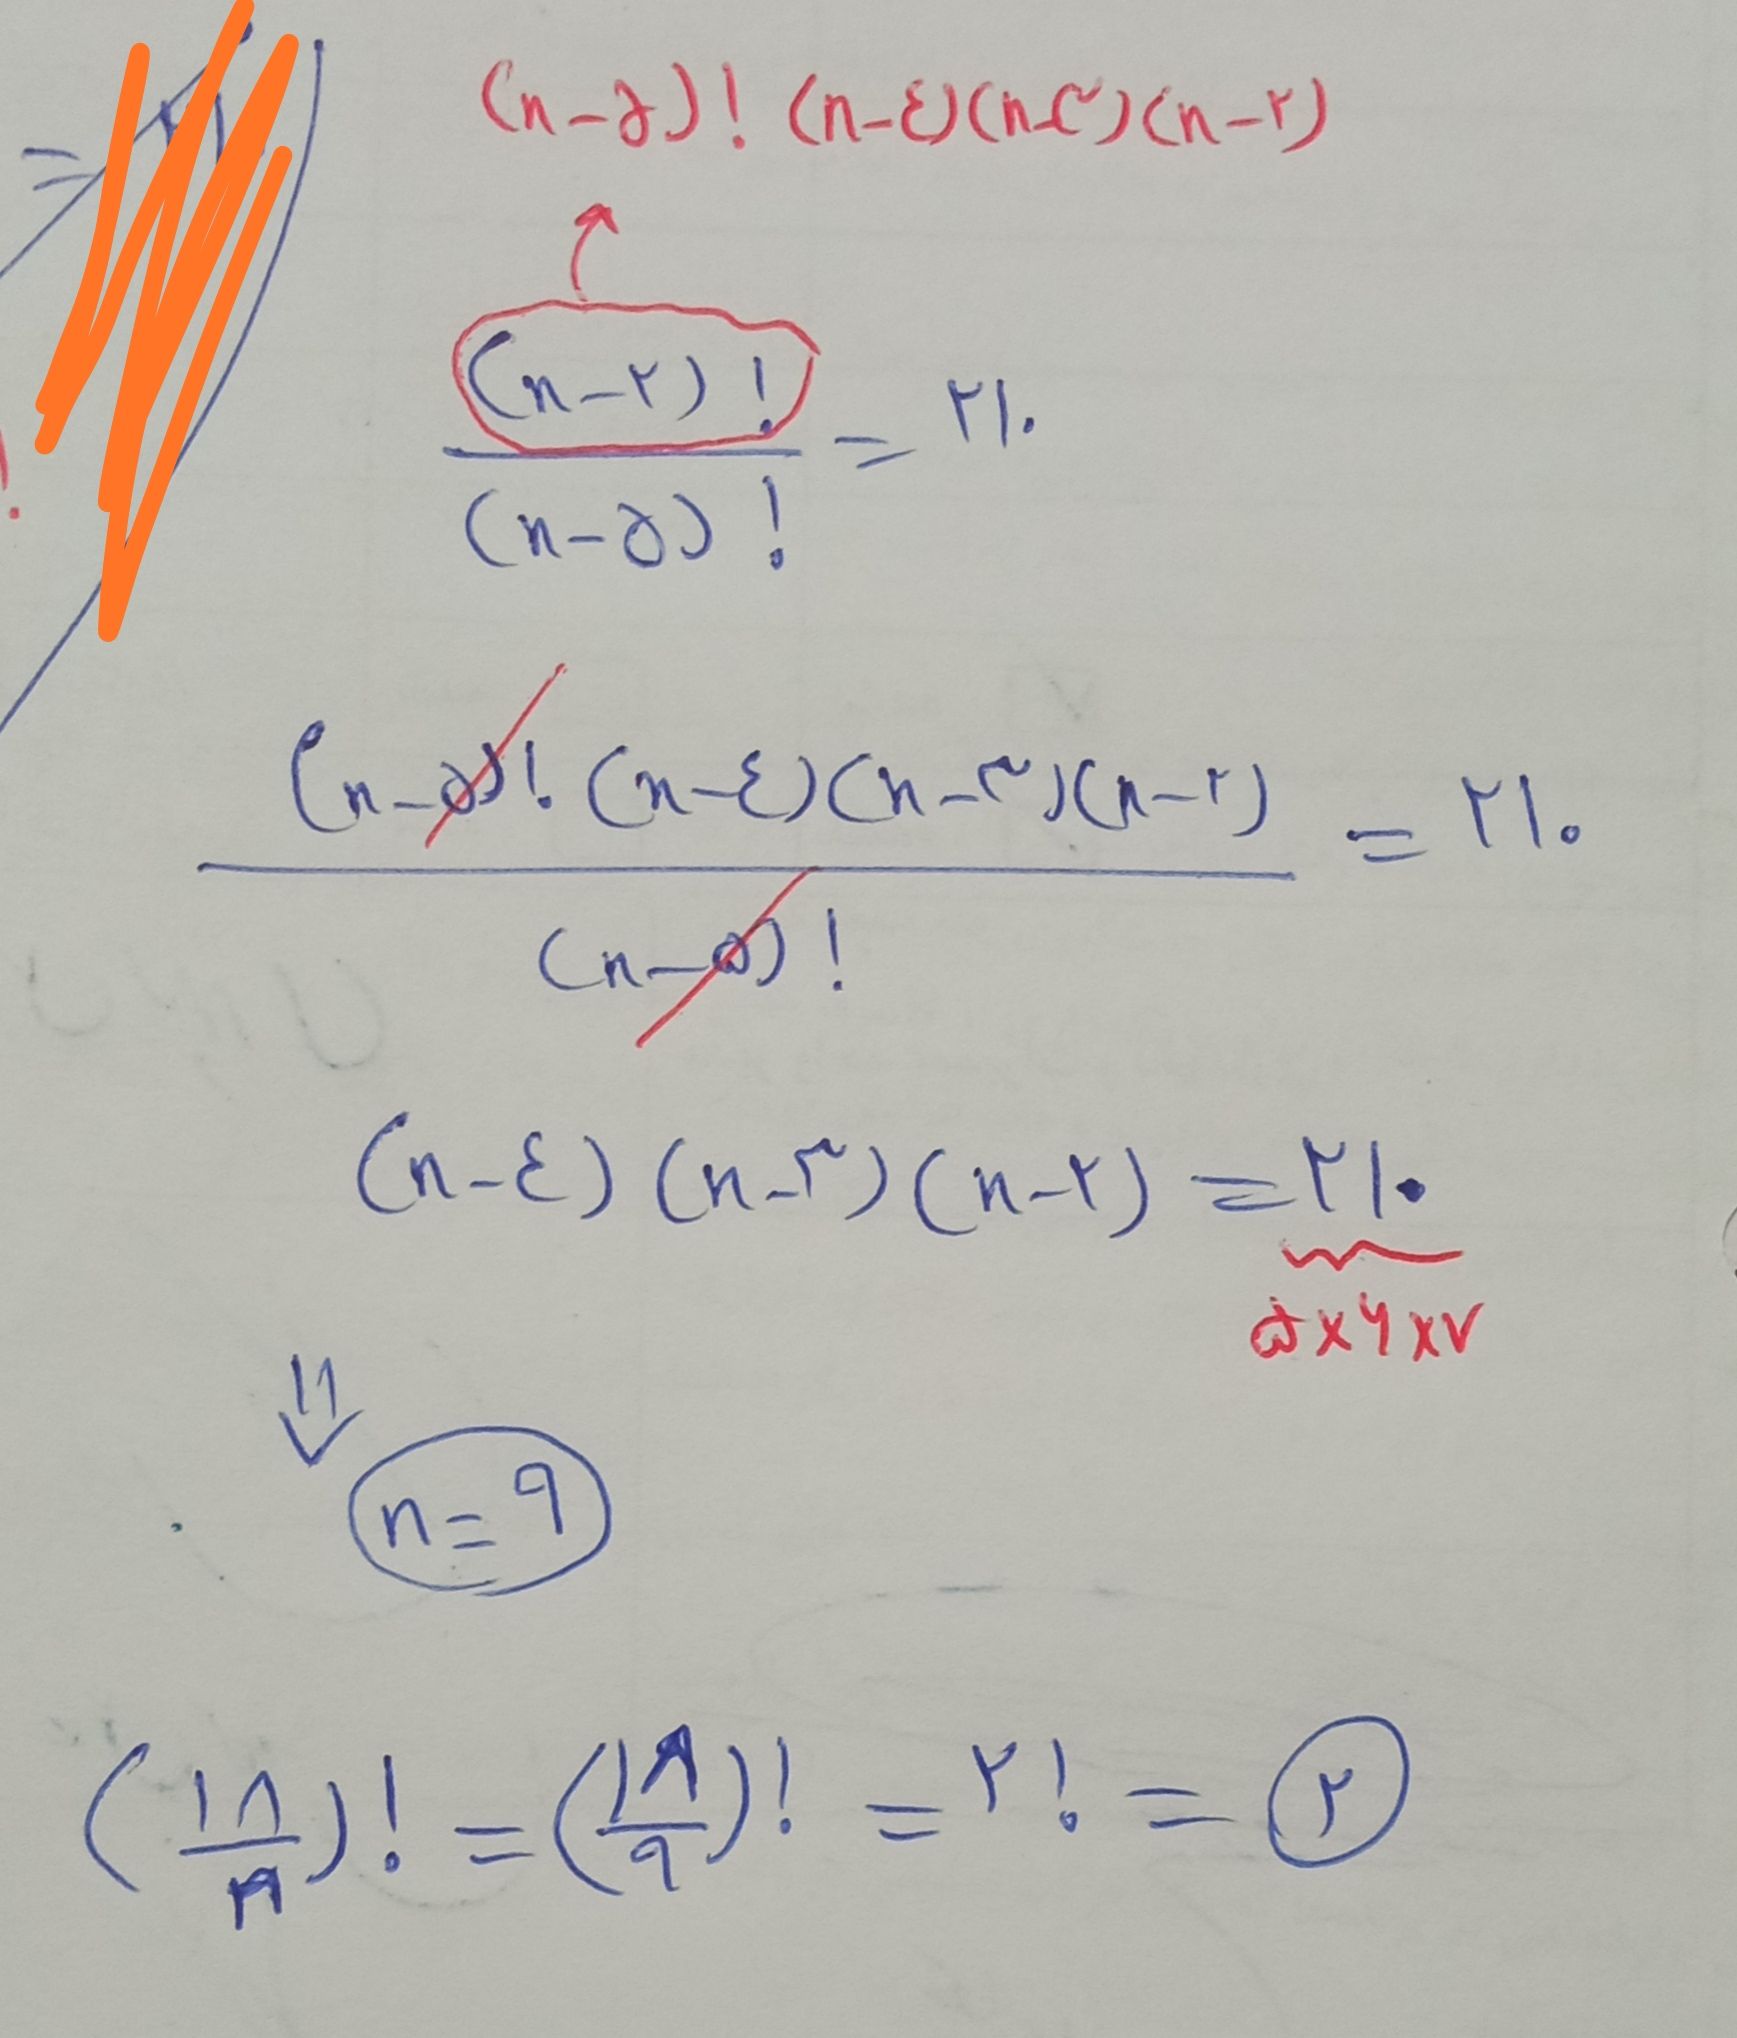 (n-۵)! (n-٤)(n-۳)(n-۲)
(n-۲)! = ۲۱۰
(n-۵)!
(n-۵)! (n-٤)(n-۳)(n-۲) = ۲۱۰
(n-۵)!
(n-٤)(n-۳)(n-۲) = ۲۱۰
۵×۶×۷
⇓
n=۹
(۱۸/n)! = (۱۸/۹)! = ۲! = ۲